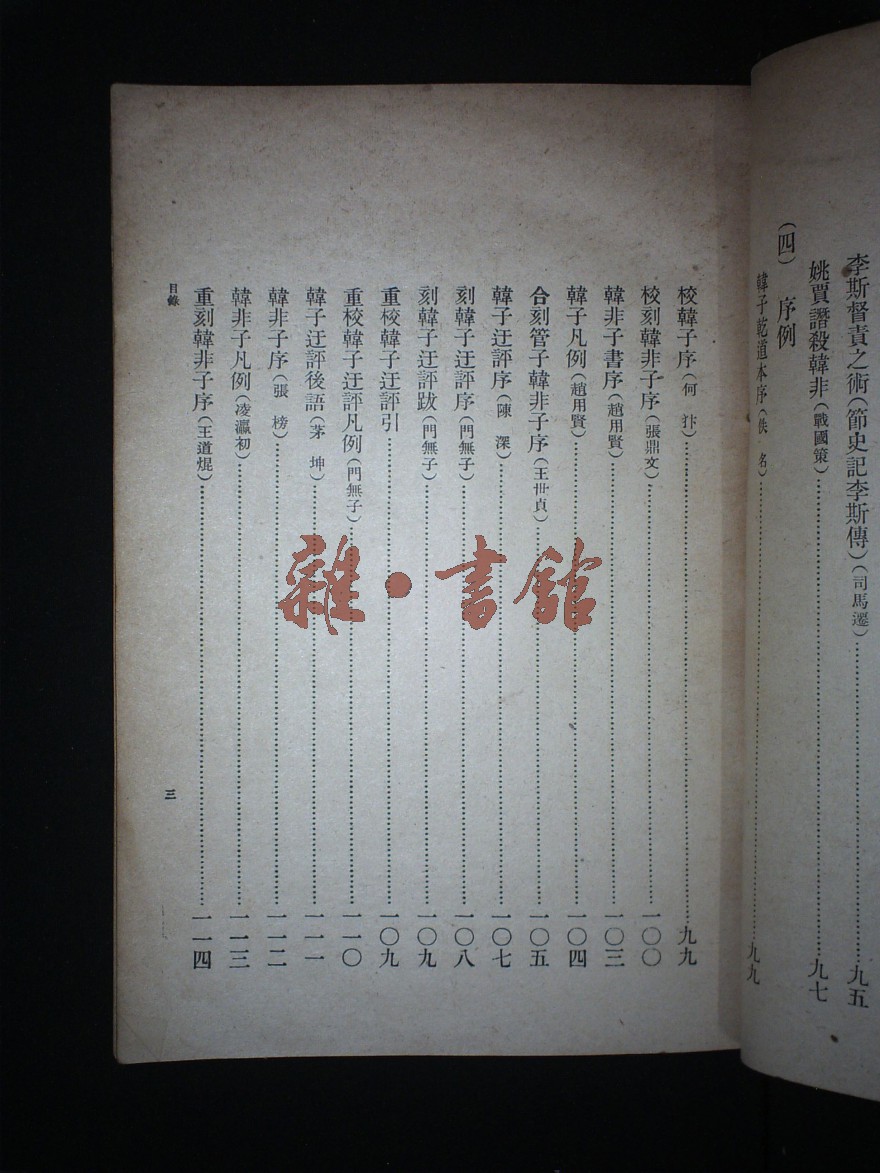 李斯督責之術(節史記李斯傳)(司馬遷)……九五
姚賈譖殺韓非(戰國策)……九七
(四) 序例
韓子乾道本序(佚 名)……九九
校韓子序(何 犿)……九九
校刻韓非子序(張鼎文)……一〇〇
韓非子書序(趙用賢)……一〇三
韓子凡例(趙用賢)……一〇四
合刻管子韓非子序(王世貞)……一〇五
韓子迂評序(陳 深)……一〇七
刻韓子迂評序(門無子)……一〇八
刻韓子迂評跋(門無子)……一〇九
重校韓子迂評引……一〇九
重校韓子迂評凡例(門無子)……一一〇
韓子迂評後語(茅 坤)……一一一
韓非子序(張 榜)……一一二
韓非子凡例(凌瀛初)……一一三
重刻韓非子序(王道焜)……一一四
目錄
三
雜·書館